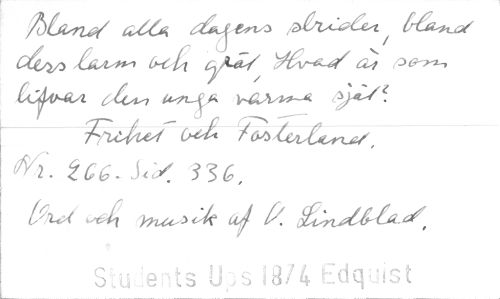 Bland alla dagens strider, bland
dess larm och gråt, Hvad är som
lifvar den unga varma själ?
Frihet och Fosterland.
Nr. 266. Sid. 336.
Ord och musik af V. Lindblad.
Students Ups 1874 Edquist